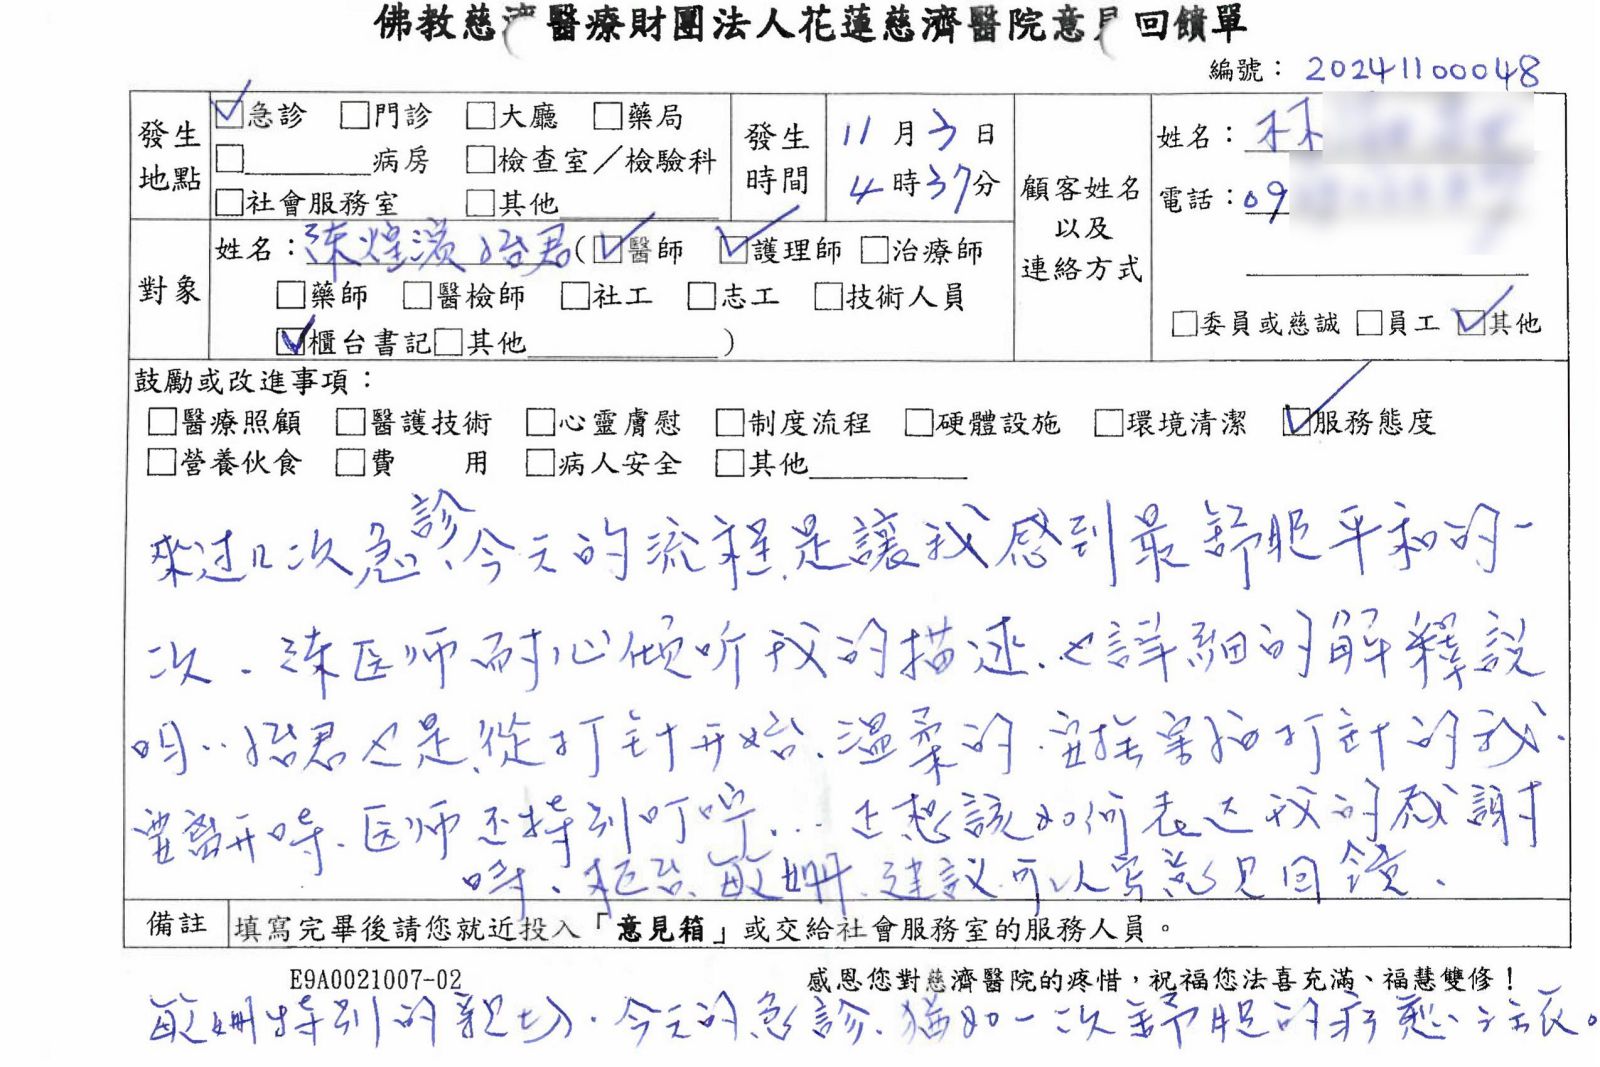 佛教慈濟醫療財團法人花蓮慈濟醫院意見回饋單
編號： 20241100048
發生地點
急診 門診 大廳 藥局
病房 檢查室／檢驗科
社會服務室 其他
發生時間
11月3日
4時37分
顧客姓名以及連絡方式
姓名：林
電話：09
委員或慈誠 員工 其他
對象
姓名：陳煌濱 怡君（醫師 護理師 治療師
藥師 醫檢師 社工 志工 技術人員
櫃台書記 其他 ）
鼓勵或改進事項：
醫療照顧 醫護技術 心靈膚慰 制度流程 硬體設施 環境清潔 服務態度
營養伙食 費用 病人安全 其他
來过几次急診、今天的流程是讓我感到最舒服平和的一
次．陳医师耐心倾听我的描述．也詳細的解釋說
明．．怡君也是從打針开始．溫柔的．安撫害怕打針的我．
要離开時．医师还特別叮嚀...正想該如何表达我的感謝
時、柜台敏姍建议可以寫意見回饋．
備註 填寫完畢後請您就近投入「意見箱」或交給社會服務室的服務人員。
E9A0021007-02 感恩您對慈濟醫院的疼惜，祝福您法喜充滿、福慧雙修！
敏姍特別的親切．今天的急診．猶如一次舒服的療癒之旅。